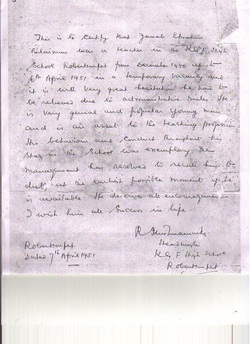 This is to certify that Janab
was a teacher in the K.G.F. High
School Robertsonpet from to
6th April 1951 in a temporary vacancy and
it is with very great hesitation he has to
be relieved due to administrative rules. He
is very genial and popular young
and is an asset to the teaching profession
His behaviour and conduct throughout his
stay in the School was exemplary. The
management has resolved to retain him to
duty at the earliest possible moment if he
is available. He deserves all encouragement
I wish him all success in life
R.
Headmaster
K.G.F. High School
Robertsonpet
Robertsonpet
Dated 7th April 1951